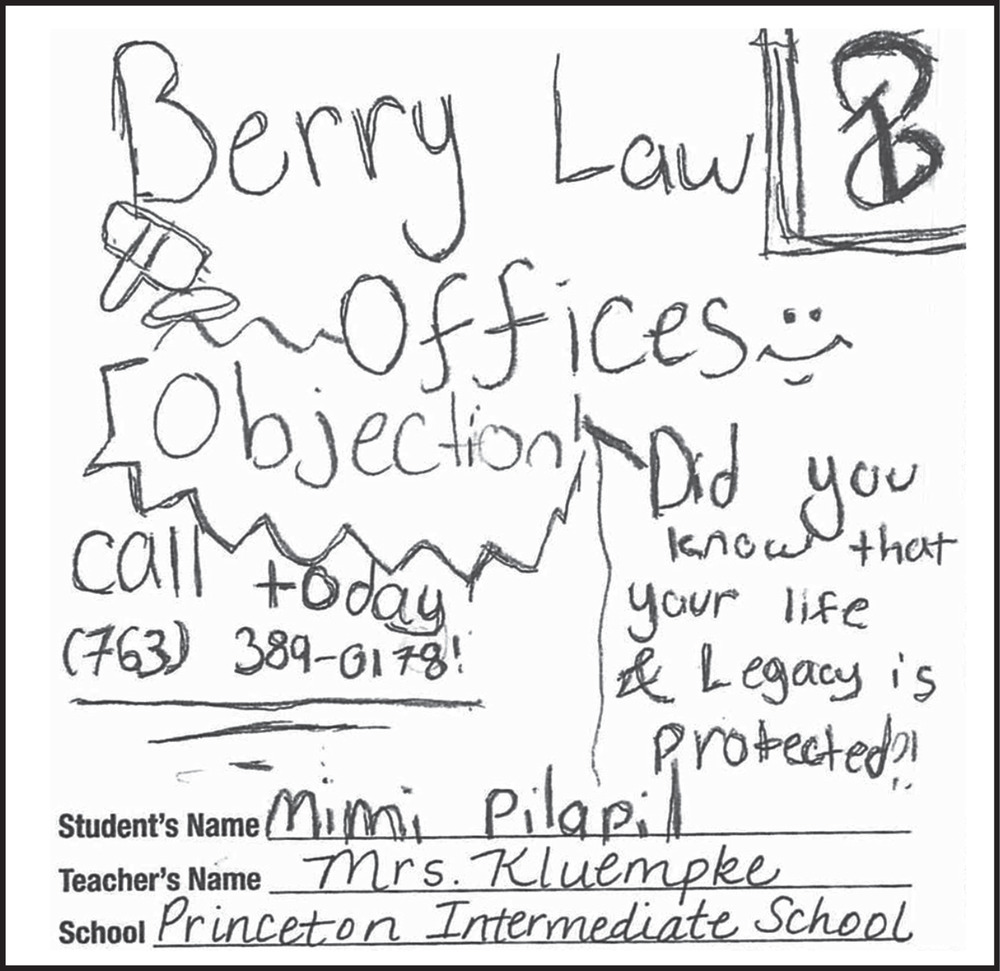 Berry Law
B
Offices
Objection!
call today
(763) 389-0178!
Did you
know that
your life
& Legacy is
protected?!
Student's Name Mimi Pilapil
Teacher's Name Mrs. Kluempke
School Princeton Intermediate School